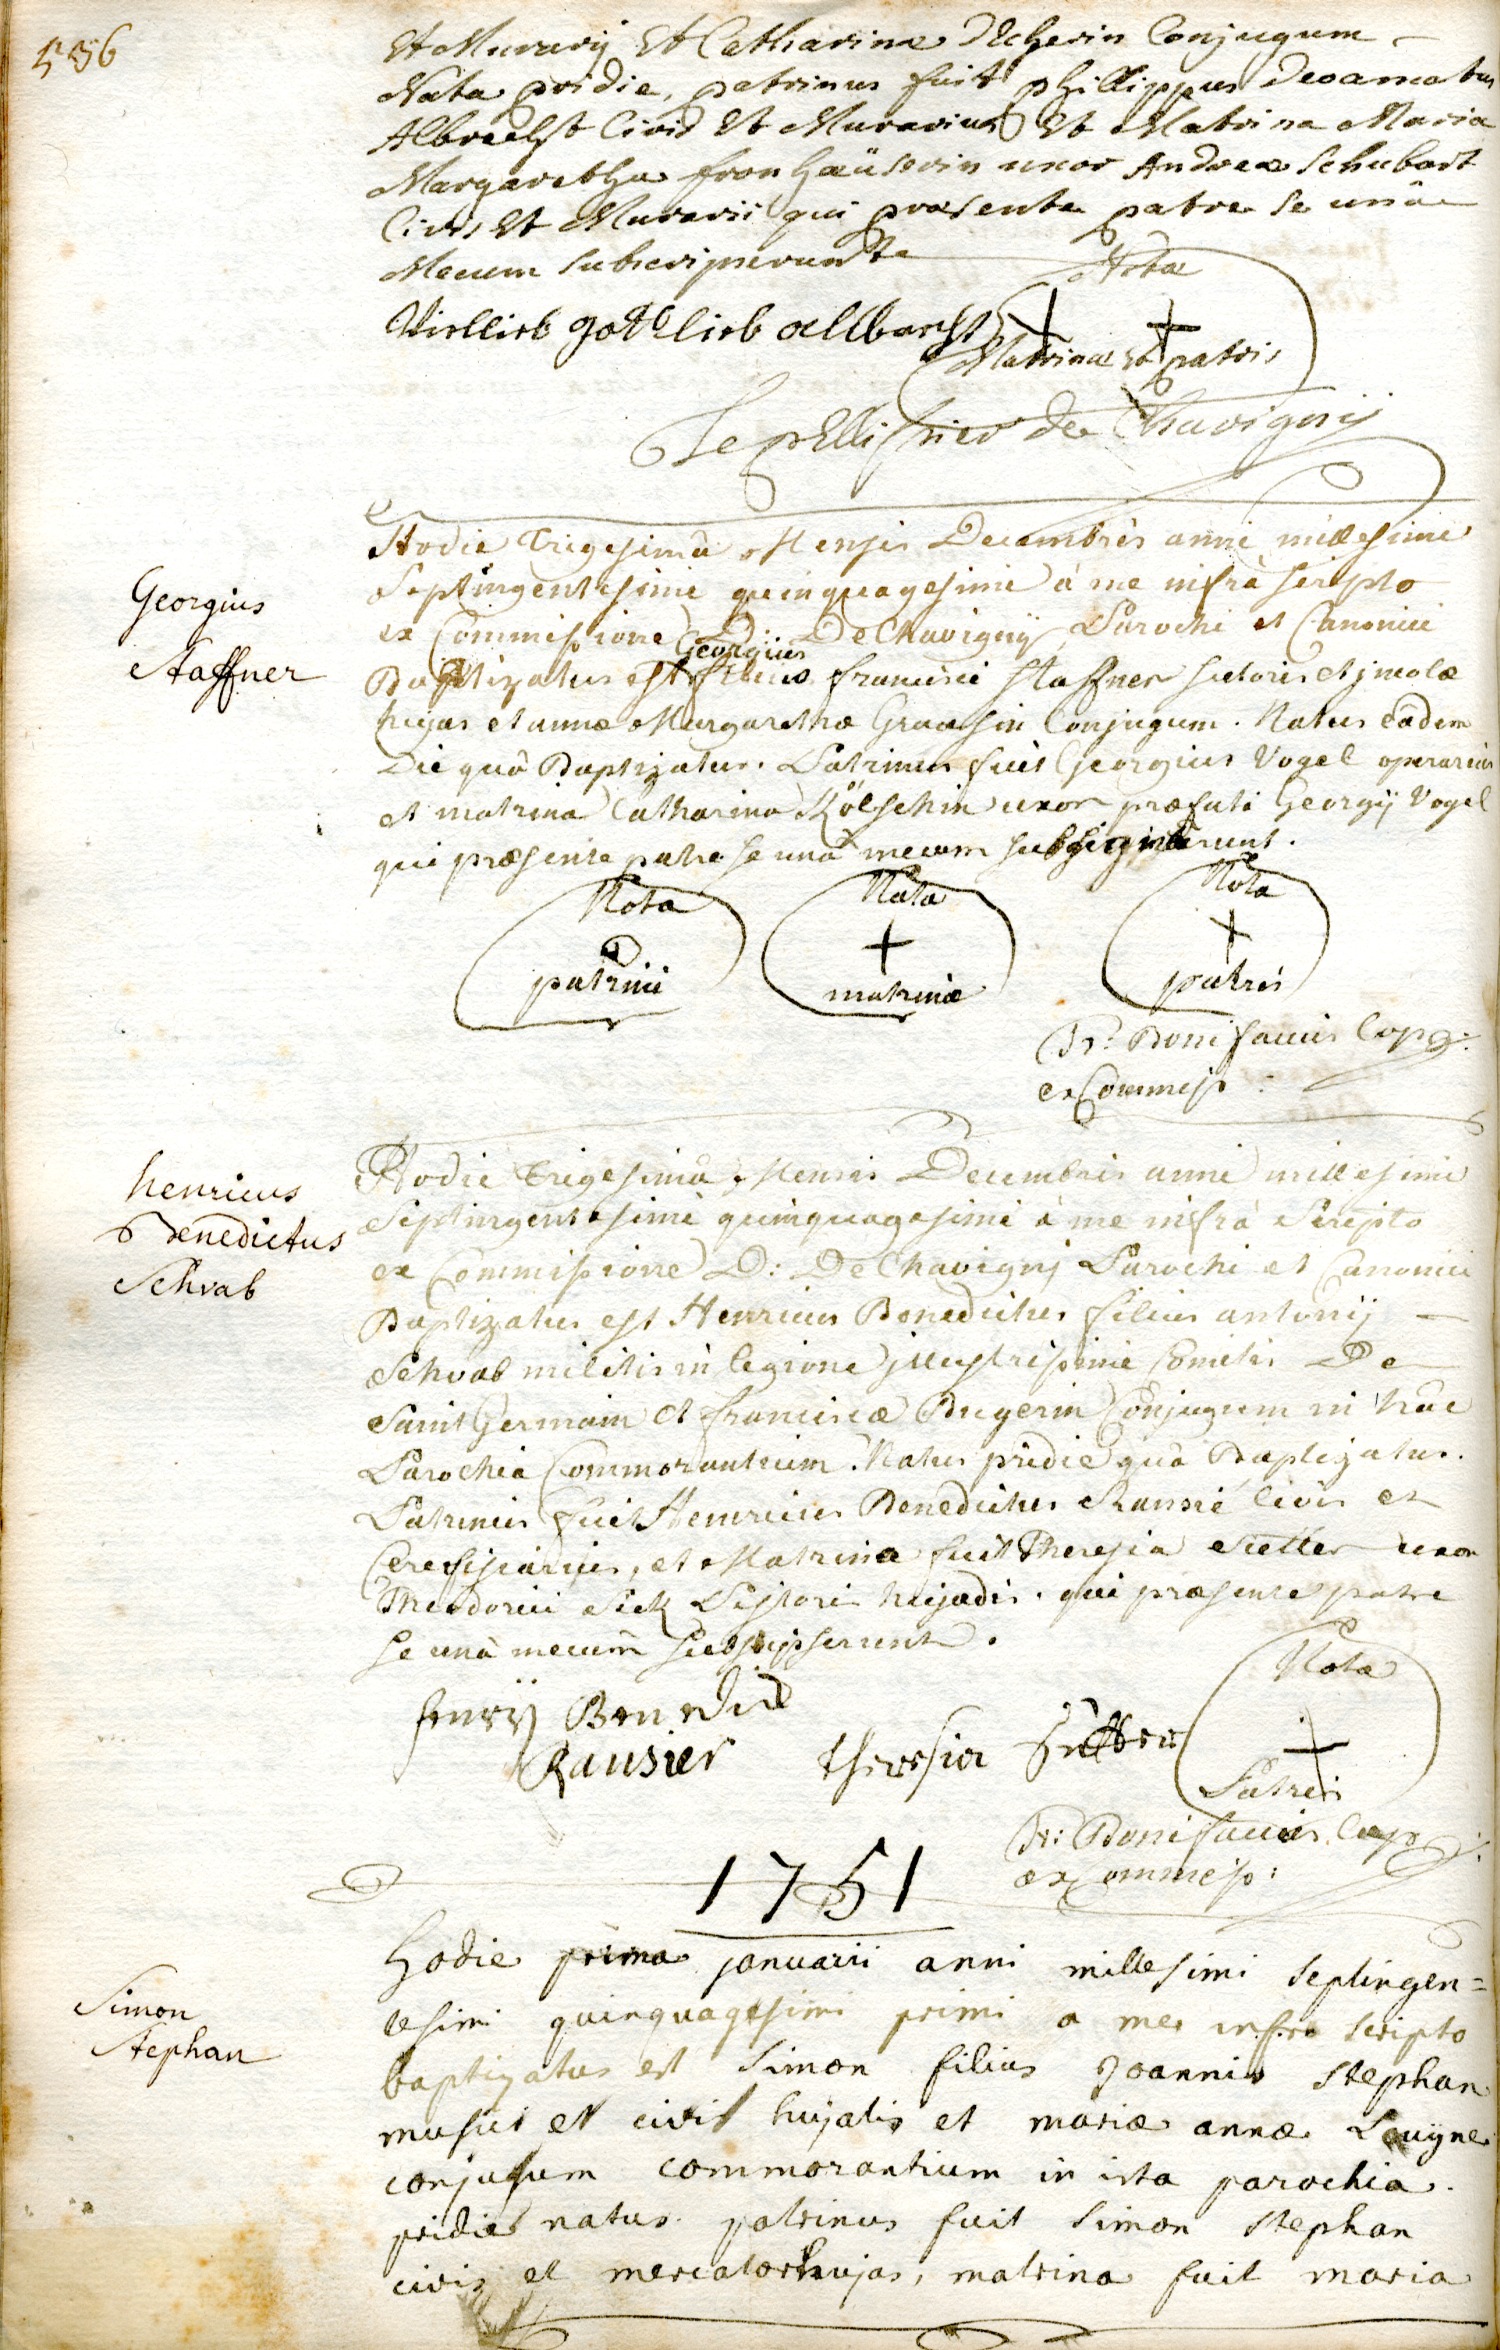 536
Et Murarij Et Catharinæ Conjugum
Nata pridie, patrinus fuit phillippus Deoamatus
Albrecht Civis Et Murarius Et Matrina Maria
Margaretha fronhaüserin uxor Andreæ Schubart
Civis Et Murarii qui præsente patre se unâ
Mecum subscripserunt
Notæ
gottlieb allbrecht
Matrinæ et patris
Le pellissier de Chavignij
Georgius
Staffner
Hodie trigesimâ Mensis Decembris anni millesimi
Septingentesimi quinquagesimi à me infrà scripto
ex Commissione D: De Chavignÿ Parochi et Canonici
Georgius
Baptizatus est filius francisci Staffner sutoris et jncolæ
hujas et annæ Margarethæ Conjugum. Natus eâdem
Die quâ Baptizatus. Patrinus fuit Georgius Vogel operarius
et matrina Catharina Kölschin uxor præfati Georgij Vogel
qui præsente patre se unâ mecum subsignârunt.
Nota
patrini
Nota
matrinæ
Nota
patris
Fr: Bonifacius Cap:
ex Commiss:
henricus
Benedictus
Schvab
Hodie trigesimâ Mensis Decembris anni millesimi
Septingentesimi quinquagesimi à me infrà Scripto
ex Commissione D: De Chavignj Parochi et Canonici
Baptizatus est Henricus Benedictus filius antonij
Schvab militis in legione jllustrissimi Comitis De
Saint Germain et franciscæ Bugerin Conjugum in hâc
Parochiâ Commorantium. Natus pridie quâ Baptizatus.
Patrinus fuit Henricus Benedictus civis et
Cerevisiarius, et Matrina fuit Theresia uxor
Theodorici Sick Pistoris hujadis. qui præsente patre
se unâ mecum subscripserunt.
Henrÿ Benedict
Rausier
theresia
Nota
Patris
Fr: Bonifacius Cap:
ex Commiss:
1751
Simon
Stephan
hodie prima januarii anni millesimi septingen=
tesimi quinquagesimi primi a me infra scripto
baptizatus est Simon filius Joannis Stephan
musici et civis hujatis et mariæ annæ
conjugum commorantium in ista parochia.
pridie natus. patrinus fuit simon stephan
civis et mercator hujas, matrina fuit maria